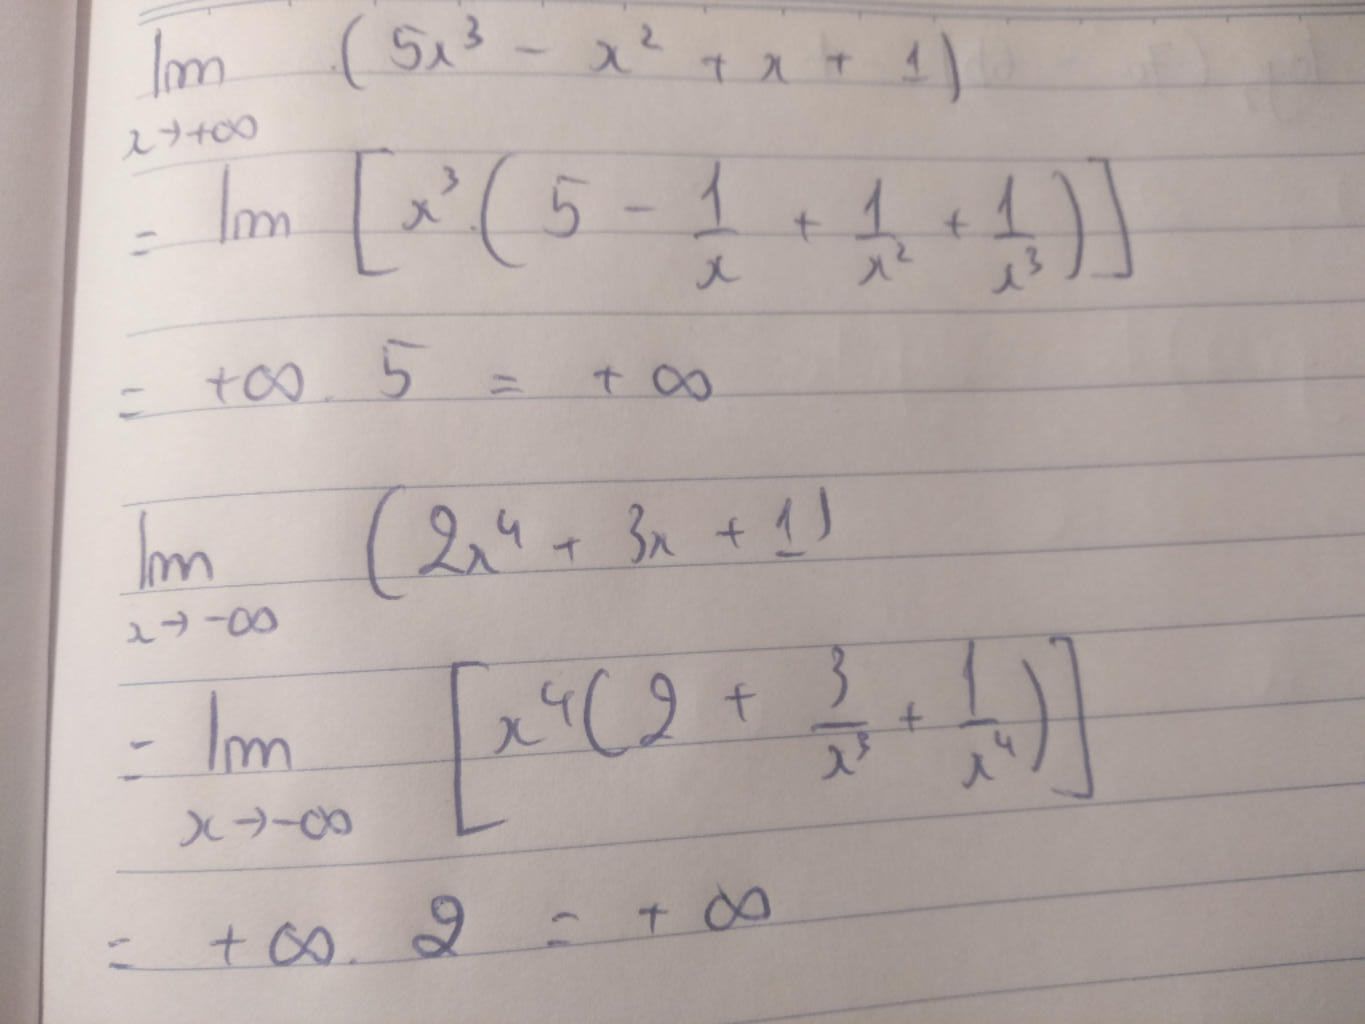 lim (5x³ - x² + x + 1)
x→+∞
= lim [x³.(5 - 1/x + 1/x² + 1/x³)]
= +∞ . 5 = +∞
lim (2x⁴ + 3x + 1)
x→-∞
= lim [x⁴(2 + 3/x³ + 1/x⁴)]
x→-∞
= +∞ . 2 = +∞